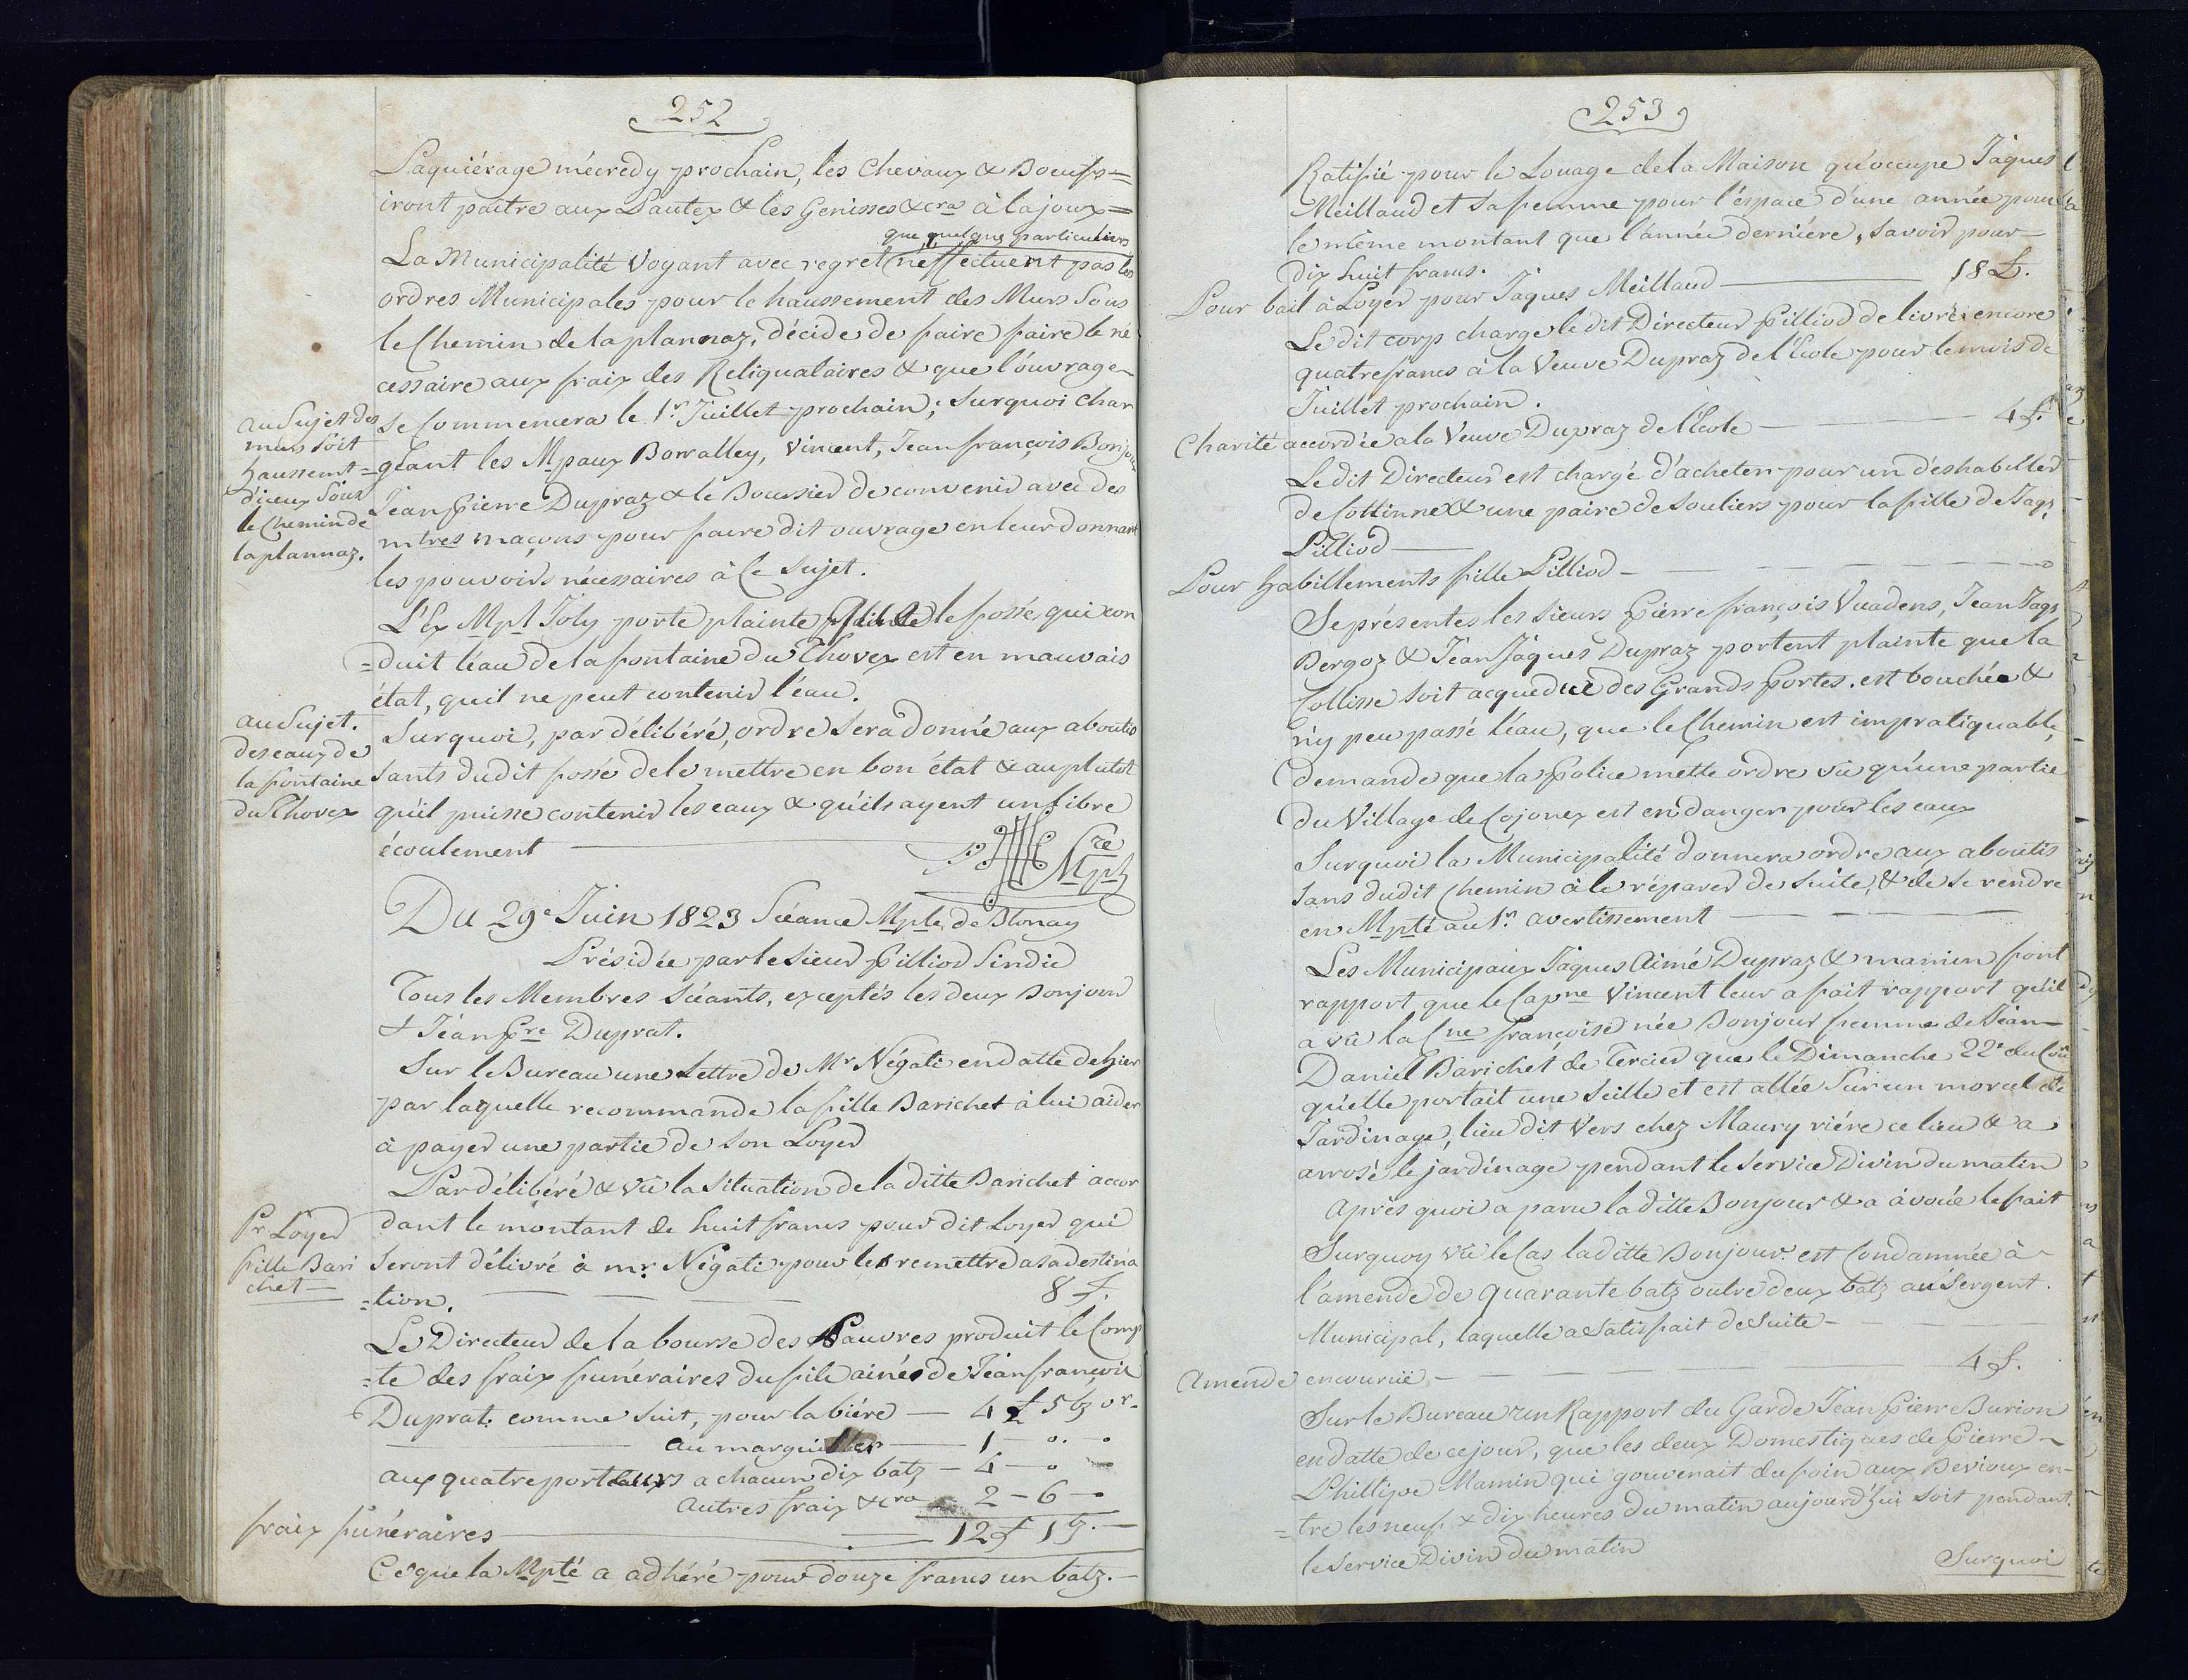 252
Paquiérage mécredy prochain, les Chevaux & Boeufs=
iront paitre aux Pautex & les Genisses &cra à la joux=
que quelques particuliers
La Municipalité Voyant avec regret n'effectuent pas les
ordres Municipales pour le haussement des Murs Sous
le Chemin de la plannaz, décide de faire faire le né
cessaire aux fraix des Reliquataires & que l'ouvrage
Se Commencera le 1r. Juillet prochain; Surquoi char
au Sujet des
murs soit
haussemt
d'iceux Sous
le Chemin de
la plannaz.
=geant les Mpaux Borralley, Vincent, Jean françois Bonjour
Jean Pierre Dupraz & le Boursier de convenir avec des
mtres maçons pour faire dit ouvrage en leur donnant
les pouvoirs nécessaires à Ce Sujet.
L'Ex Mpl Joly porte plainte que le fossé qui con
=duit l'éau de la fontaine du Thovex est en mauvais
état, quil ne peut contenir l'éau.
au Sujet.
des eaux de
la fontaine
du Thovex
Surquoi, par délibéré, ordre Sera donné aux aboutis
sants dudit fossé de le mettre en bon état & au plutot
qu'il puisse contenir les eaux & qu'ils ayent un libre
écoulement
Sre
Mpl
Du 29e Juin 1823 Séance Mple de Blonay
Présidée par le Sieur Pilliod Sindic
Tous les Membres Séants, exceptés les deux Bonjour
& Jéan Pre Duprat.
Sur le Bureau une Lettre de Mr Négati en datte de hier
par laquelle recommande la fille Barichet à lui aider
à payer une partie de Son Loyer
Par délibéré & vü la Situation de la ditte Barichet accor
Pr Loyer
fille Bari
chet
dant le montant de huit francs pour dit Loyer qui
Seront délivré à mr. Négati pour les remettre a sa destina
=tion. 8 f.
Le Directeur de la bourse des Pauvres produit le Comp
=te des fraix funéraires du fils ainé de Jéan françois
Duprat: comme Suit, pour la biére — 4 f 5 bz or.
au marguillier — 1 — o. — o
aux quatre porteurs a chacun dix batz — 4 — o
autres fraix &cra — 2 — 6 — o
fraix funéraires — 12 f 1 bz. —
Ce que la Mpté a adhéré pour douze francs un batz. —
253
Ratifié pour le Louage de la Maison qu'occupe Jâques
Meillaud et Sa femme pour l'éspace d'une année pour
le même montant que l'année derniére, Savoir pour
dix huit francs.
Pour bail à Loyer pour Jaques Meillaud — 18 f.
Le dit corp charge le dit Directeur Pilliod de livrer encore
quatre francs à la Veuve Dupraz de l'Ecole pour le mois de
Juillet prochain.
Charité accordée a la Veuve Dupraz de l'Ecole — 4 f.
Le dit Directeur est chargé d'acheter pour un déshabiller
de Cottinne & une paire de Souliers pour la fille de Jaqs.
Pilliod
Pour habillements fille Pilliod — o
Se présentes les Sieurs Pierre françois Vuadens, Jean Jaqs
Bergoz & Jéan Jâques Dupraz portent plainte que la
Collisse Soit acqueduc des Grands Portes. est bouchée &
n'y peu passé l'éau, que le Chemin est impratiquable,
demande que la Police mette ordre vü qu'une partie
du Village de Cojonnex est en danger pour les eaux
Surquoi la Municipalité donnera ordre aux aboutis
sans dudit Chemin à le réparer de Suite, & de Se rendre
en Mpté au 1r. avertissement
Les Municipaux Jaques Aimé Dupraz & mamin font
rapport que le Capne Vincent leur a fait rapport qu'il
a vü la Cne françoise née Bonjour femme de Jéan
Daniel Barichet de Tercier que le Dimanche 22e du Cou
qu'elle portait une Seille et est allée Sur un morcel de
Jardinage, lieu dit Vers chez Maury riére ce lieu & a
arrosé le jardinage pendant le Service Divin du matin
Après quoi a paru la ditte Bonjour & a avoüé le fait
Surquoy vü le Cas la ditte Bonjour est Condamnée à
l'amende de quarante batz outre deux batz au Sergent.
Municipal, laquelle a Satisfait de Suite
Amende encourüe — 4 f.
Sur le Bureau un Rapport du Garde Jean Pierre Burion
en datte de ce jour, que les deux Domestiques de Pierre
Phillipe Mamin qui gouvernait du foin aux Bevioux en-
=tre les neuf & dix heures du matin aujourd'hui Soit pendant
le Service Divin du matin
Surquoi